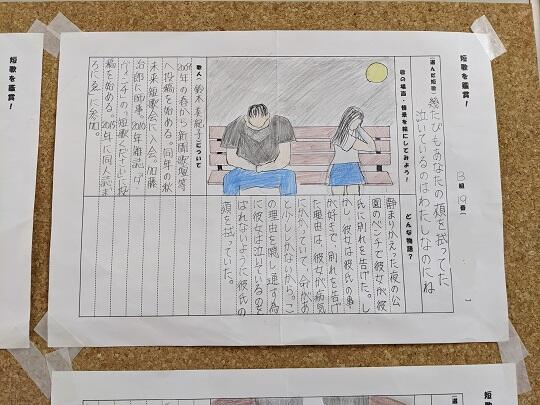 短歌を鑑賞！
3組 19番
【選んだ短歌】
幾たびもあなたの頬を拭ってた
泣いているのはわたしなのにね
歌の場面・情景を絵にしてみよう！
どんな物語？
静まりかえった夜の公
園のベンチで彼女が彼
氏に別れを告げた。し
かし、彼女は彼氏の事
が好きで、別れを告げ
た理由は、彼女が病気
にかかっていて、命があ
と少ししかないから。こ
の理由を隠し通す為
に彼女は泣いているのを
ばれないように彼氏の
頬を拭っていた。
歌人（鈴木美紀子）について
2009年の春から新聞歌壇等
へ投稿を始める。同年の秋
未来短歌会に入会。加藤
治郎に師事。
を始める。2015年に同人誌ま
ろにゑに参加。
短歌を鑑賞！
短歌
【選